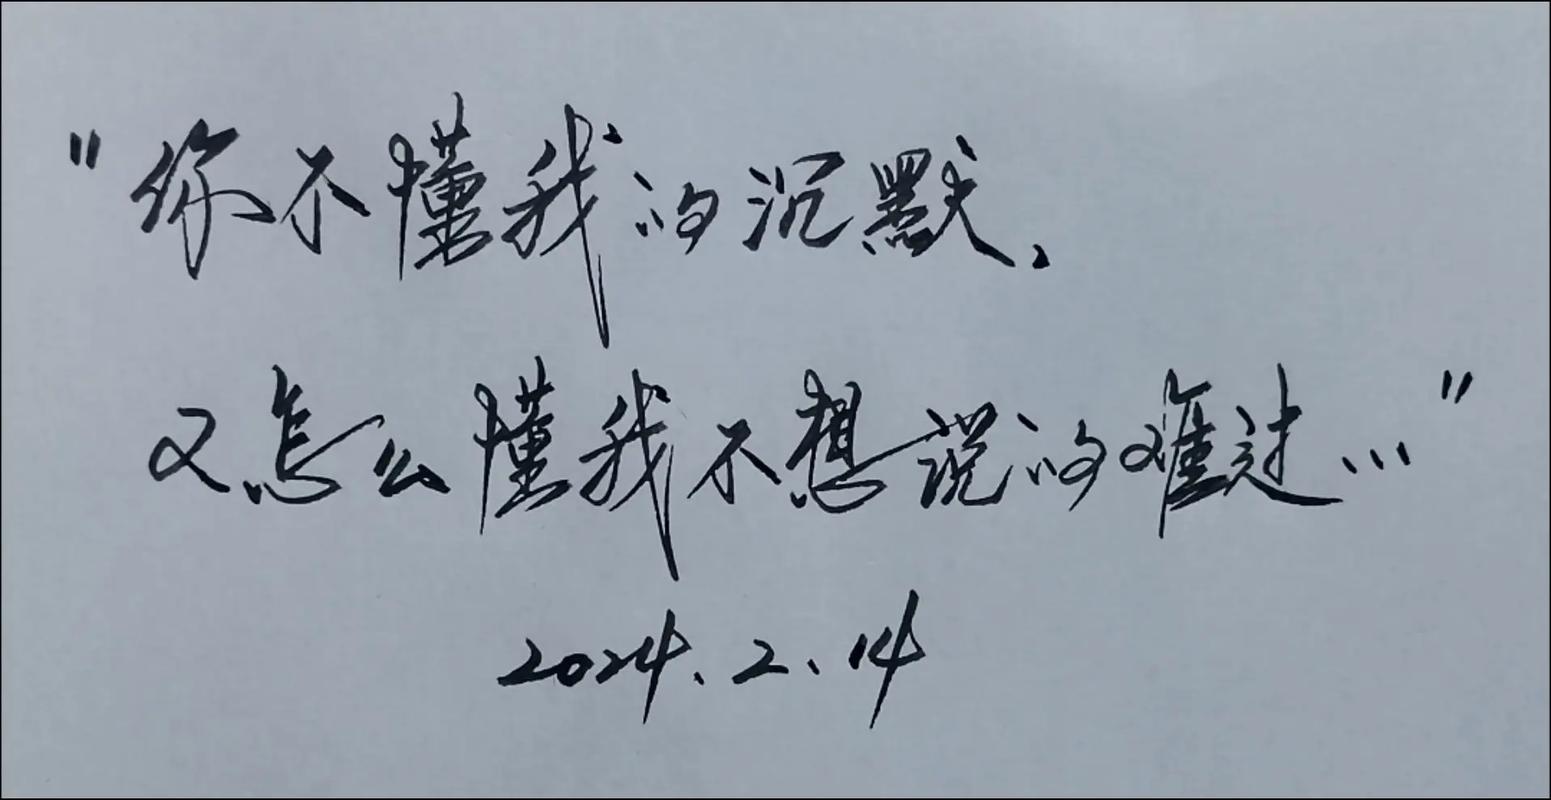 "你不懂我的沉默、
又怎么懂我不想说的难过..."
2024.2.14